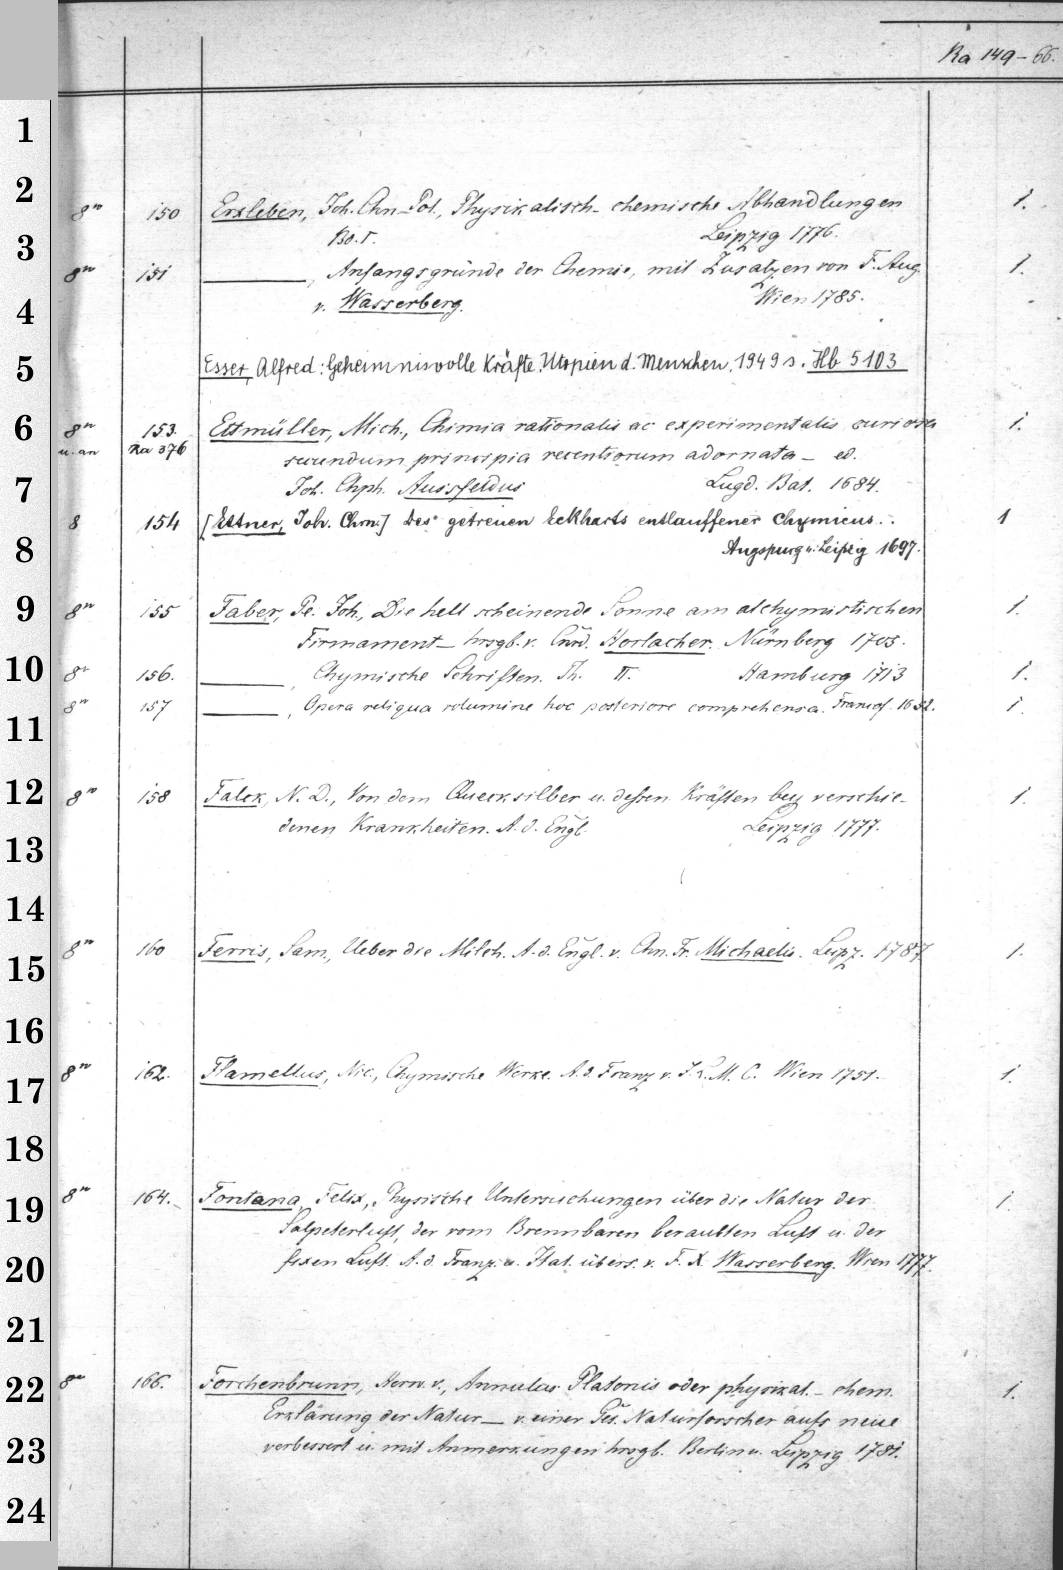 Ra 149-66.
1
2
8° 150 Erxleben, Joh. Chn. Pol., Physikalisch-chemische Abhandlungen 1.
Bd. I. Leipzig 1776.
3
8° 151 ———, Anfangsgründe der Chemie, mit Zusätzen von F. Aug. 1.
v. Wasserberg. Wien 1785.
4
5
Esser, Alfred: Geheimnisvolle Kräfte. Utopien d. Menschen. 1949 s. Hb 5103
6
8° 153. Ettmüller, Mich., Chimia rationalis ac experimentalis curiosa 1.
u. an Ra 376 secundum principia recentiorum adornata — ed.
7
Joh. Chph. Aussfeldus Lugd. Bat. 1684.
8 154 [Ettner, Joh. Chrn.] Des getreuen Eckharts entlauffener Chymicus.. 1
8
Augspurg u. Leipzig 1697.
9
8° 155 Faber, Pe. Joh., Die hell scheinende Sonne am alchymistischen 1.
Firmament — hrsgb. v. Cnrd. Horlacher. Nürnberg 1705.
10
8° 156. ———, Chymische Schriften. Th. II. Hamburg 1713 1.
8° 157 ———, Opera reliqua volumine hoc posteriore comprehensa. Francof. 1652. 1.
11
12
8° 158 Falck, N. D., Von dem Quecksilber u. deßen Kräften bey verschie- 1.
denen Krankheiten. A. d. Engl. Leipzig 1777.
13
14
8° 160 Ferris, Sam., Ueber die Milch. A. d. Engl. v. Chn. Fr. Michaelis. Leipz. 1787 1.
15
16
8° 162. Flamellus, Nic., Chymische Werke. A. d. Franz v. J. L. M. C. Wien 1751. 1.
17
18
8° 164. Fontana, Felix, Physische Untersuchungen über die Natur der 1.
19
Salpeterluft, der vom Brennbaren beraubten Luft u. der
20
fixen Luft. A. d. Franz. u. Ital. übers. v. F. X. Wasserberg. Wien 1777.
21
8° 166. Forchenbrunn, Herm. v., Annulus Platonis oder physikal.-chem. 1.
22
Erklärung der Natur — v. einer Ges. Naturforscher aufs neue
23
verbessert u. mit Anmerkungen hrsgb. Berlin u. Leipzig 1781.
24